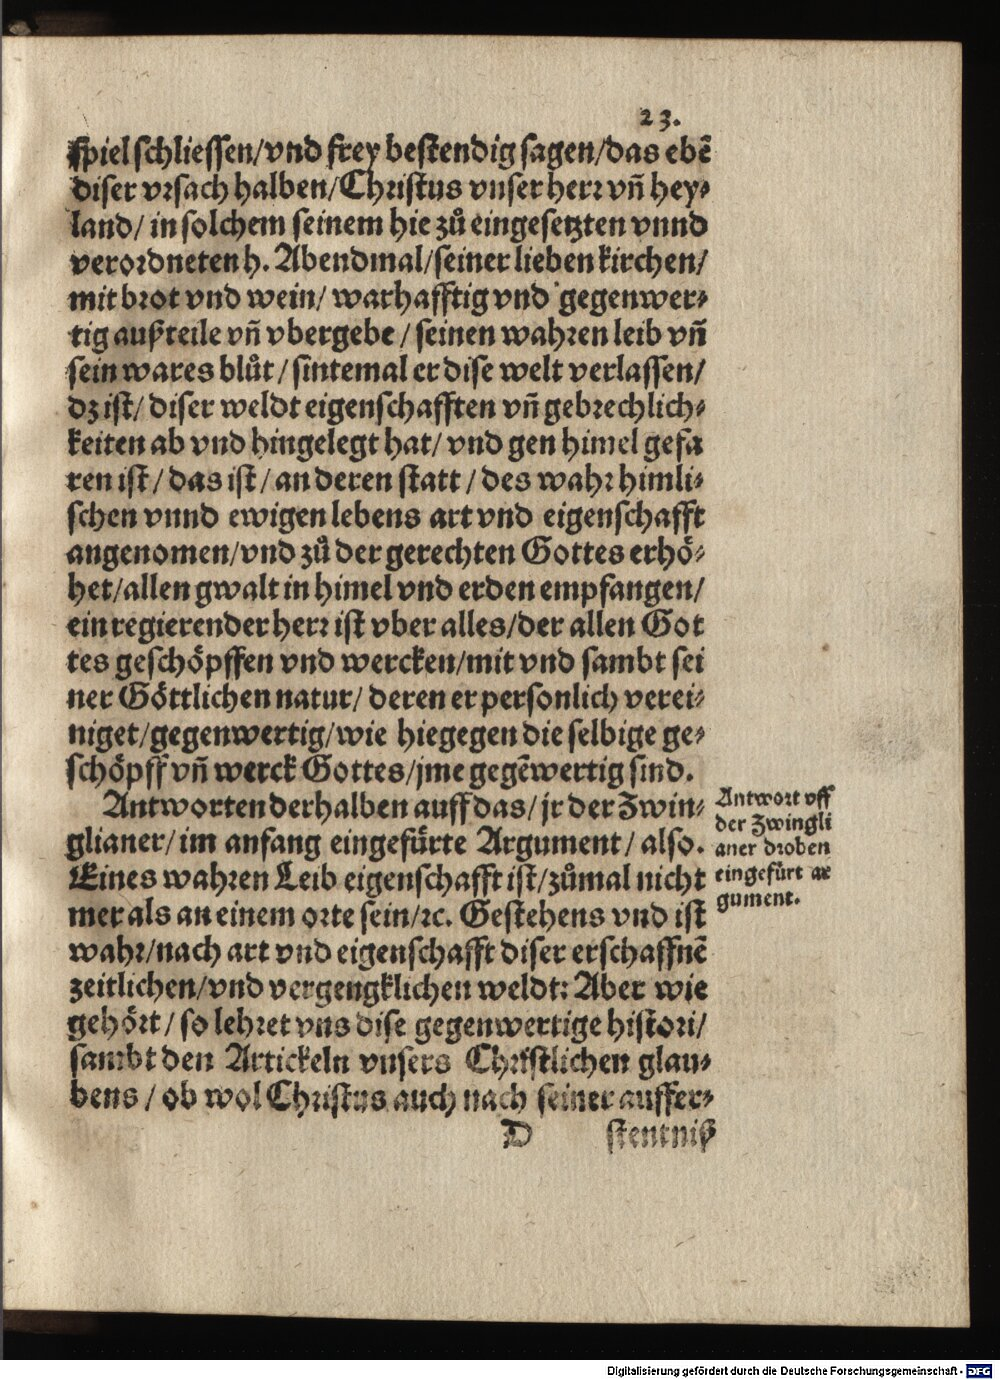 23.
spiel schliessen/vnd frey bestendig sagen/das ebē
diser vrsach halben/Christus vnser herr vn̄ hey-
land/ in solchem seinem hie zů eingesetzten vnnd
verordneten h. Abendmal/seiner lieben kirchen/
mit brot vnd wein/ warhafftig vnd gegenwer-
tig außteile vn̄ vbergebe / seinen wahren leib vn̄
sein wares blůt / sintemal er dise welt verlassen/
dz ist/ diser weldt eigenschafften vn̄ gebrechlich-
keiten ab vnd hingelegt hat/ vnd gen himel gefa
ren ist / das ist / an deren statt / des wahr himli-
schen vnnd ewigen lebens art vnd eigenschafft
angenomen/vnd zů der gerechten Gottes erhö-
het/allen gwalt in himel vnd erden empfangen/
ein regierender herr ist vber alles/der allen Got
tes geschöpffen vnd wercken/mit vnd sambt sei
ner Göttlichen natur/ deren er personlich verei-
niget/gegenwertig/wie hiegegen die selbige ge-
schöpff vn̄ werck Gottes/jme gegēwertig sind.
Antworten derhalben auff das/ jr der Zwin-
glianer/im anfang eingefürte Argument/ also.
Eines wahren Leib eigenschafft ist/zůmal nicht
mer als an einem orte sein/ꝛc. Gestehens vnd ist
wahr/nach art vnd eigenschafft diser erschaffnē
zeitlichen/vnd vergengklichen weldt: Aber wie
gehört / so lehret vns dise gegenwertige histori/
sambt den Artickeln vnsers Christlichen glau-
bens / ob wol Christus auch nach seiner auffer-
D stentniß
Antwort vff
der Zwingli
aner droben
eingefürt ar
gument.
Digitalisierung gefördert durch die Deutsche Forschungsgemeinschaft - DFG